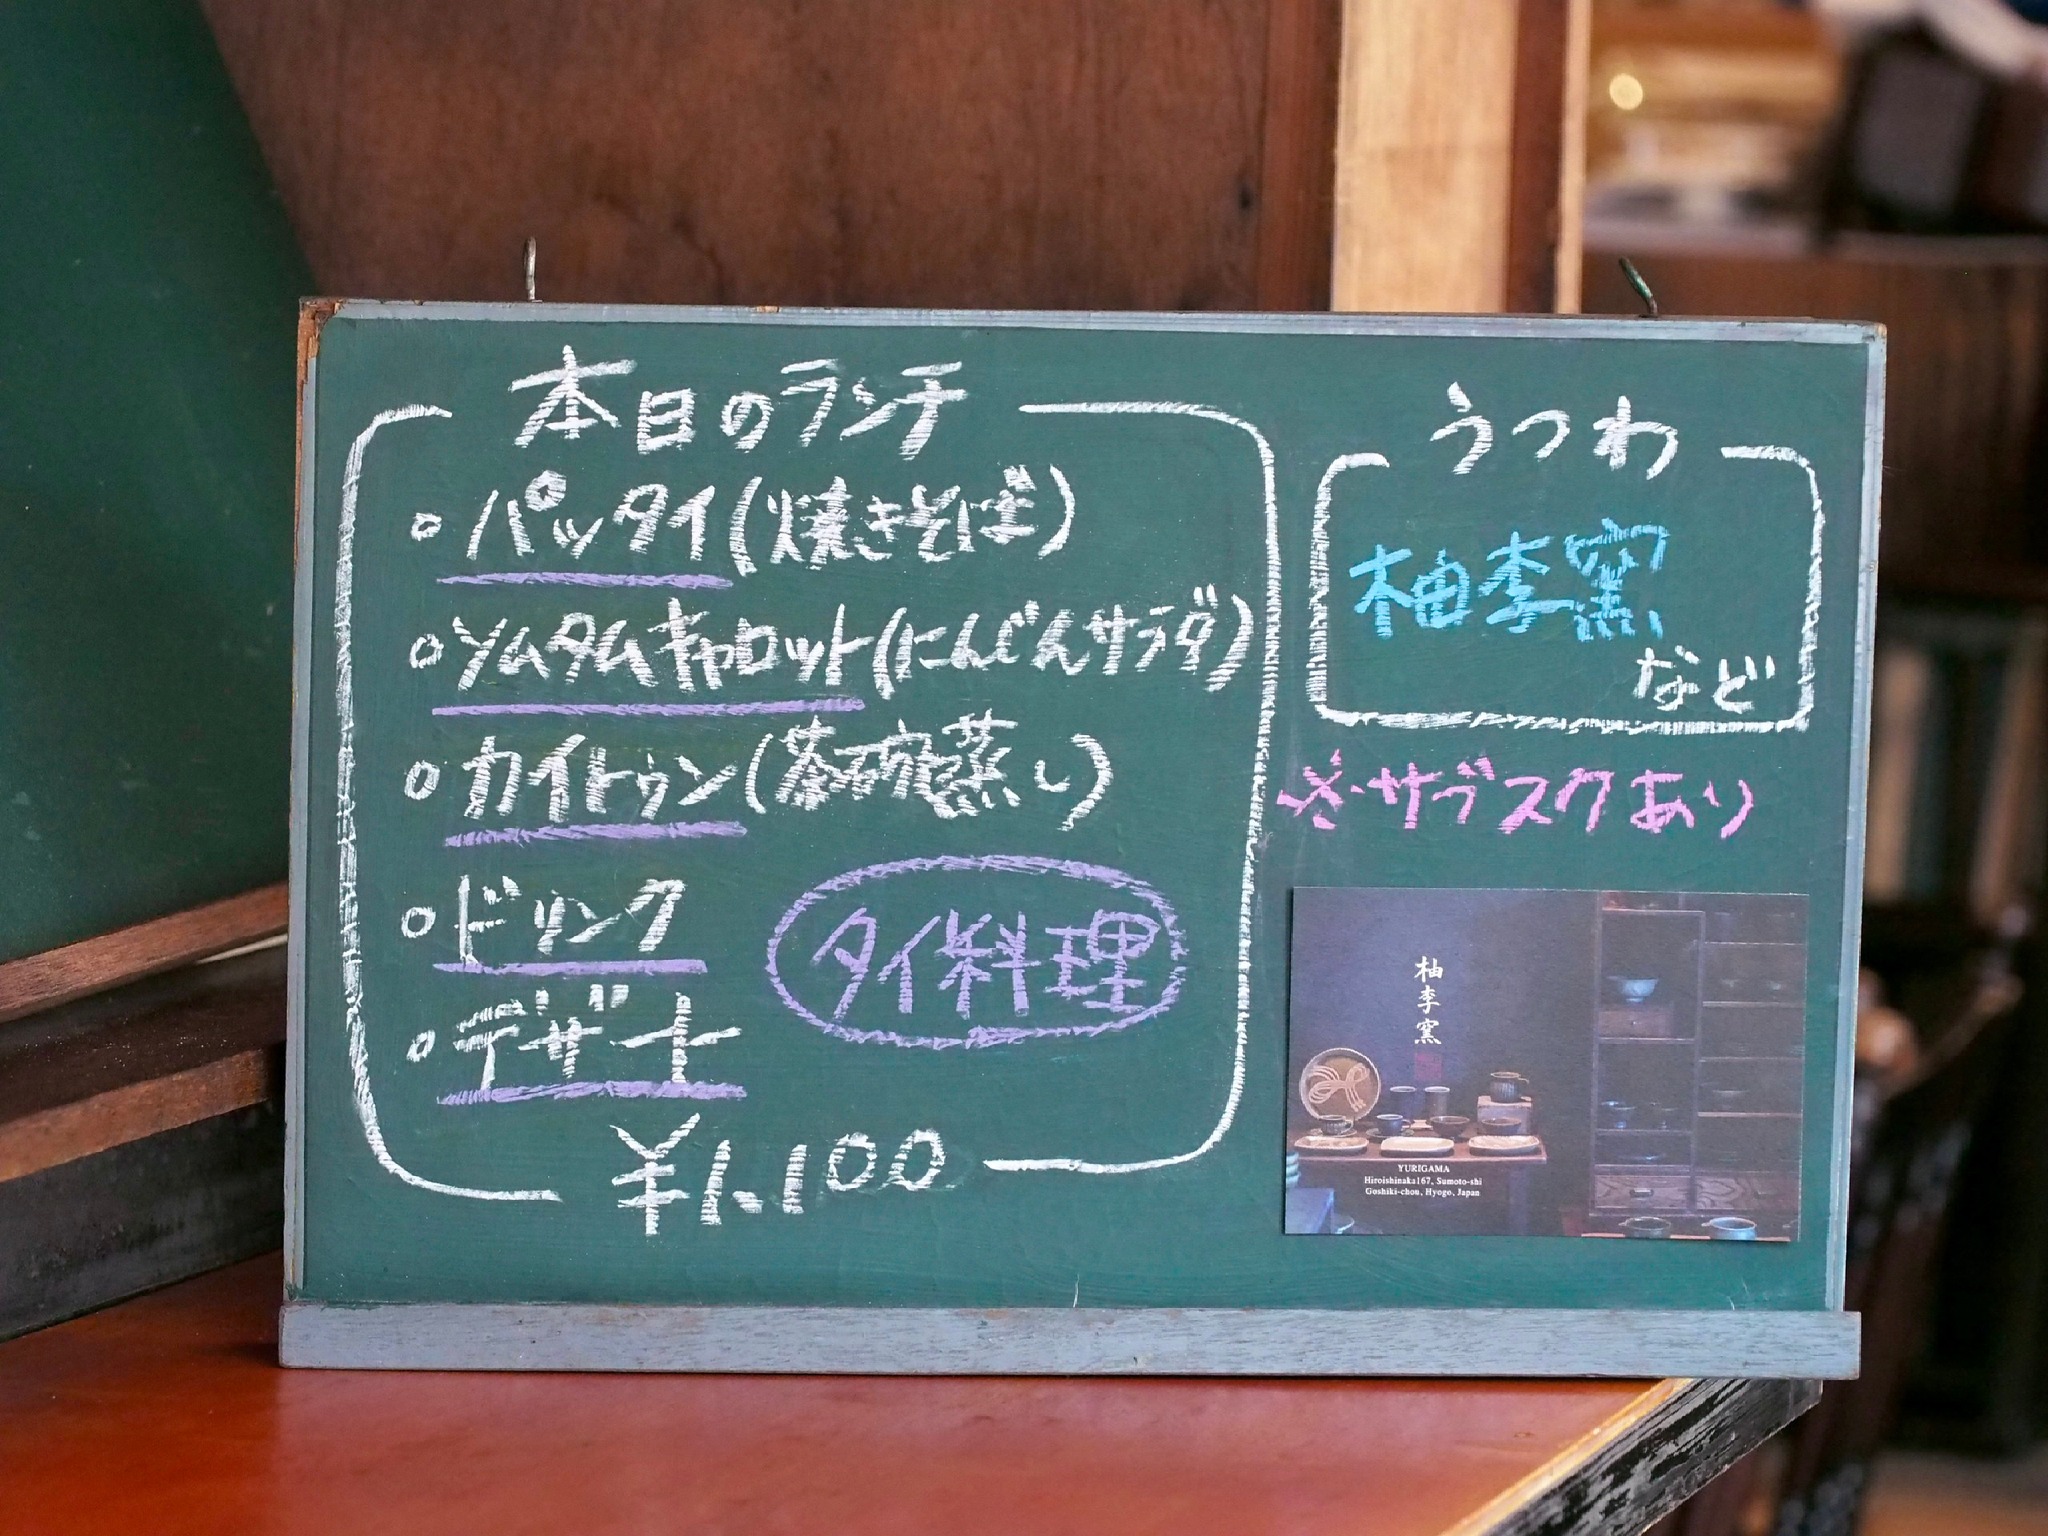 本日のランチ
○パッタイ(焼きそば)
○ソムタムキャロット(にんじんサラダ)
○カイトゥン(茶碗蒸し)
○ドリンク
○デザート
タイ料理
¥1.100
うつわ
柚李窯
など
※サブスクあり
柚李窯
YURIGAMA
Hiroishinaka167, Sumoto-shi
Goshiki-chou, Hyogo, Japan